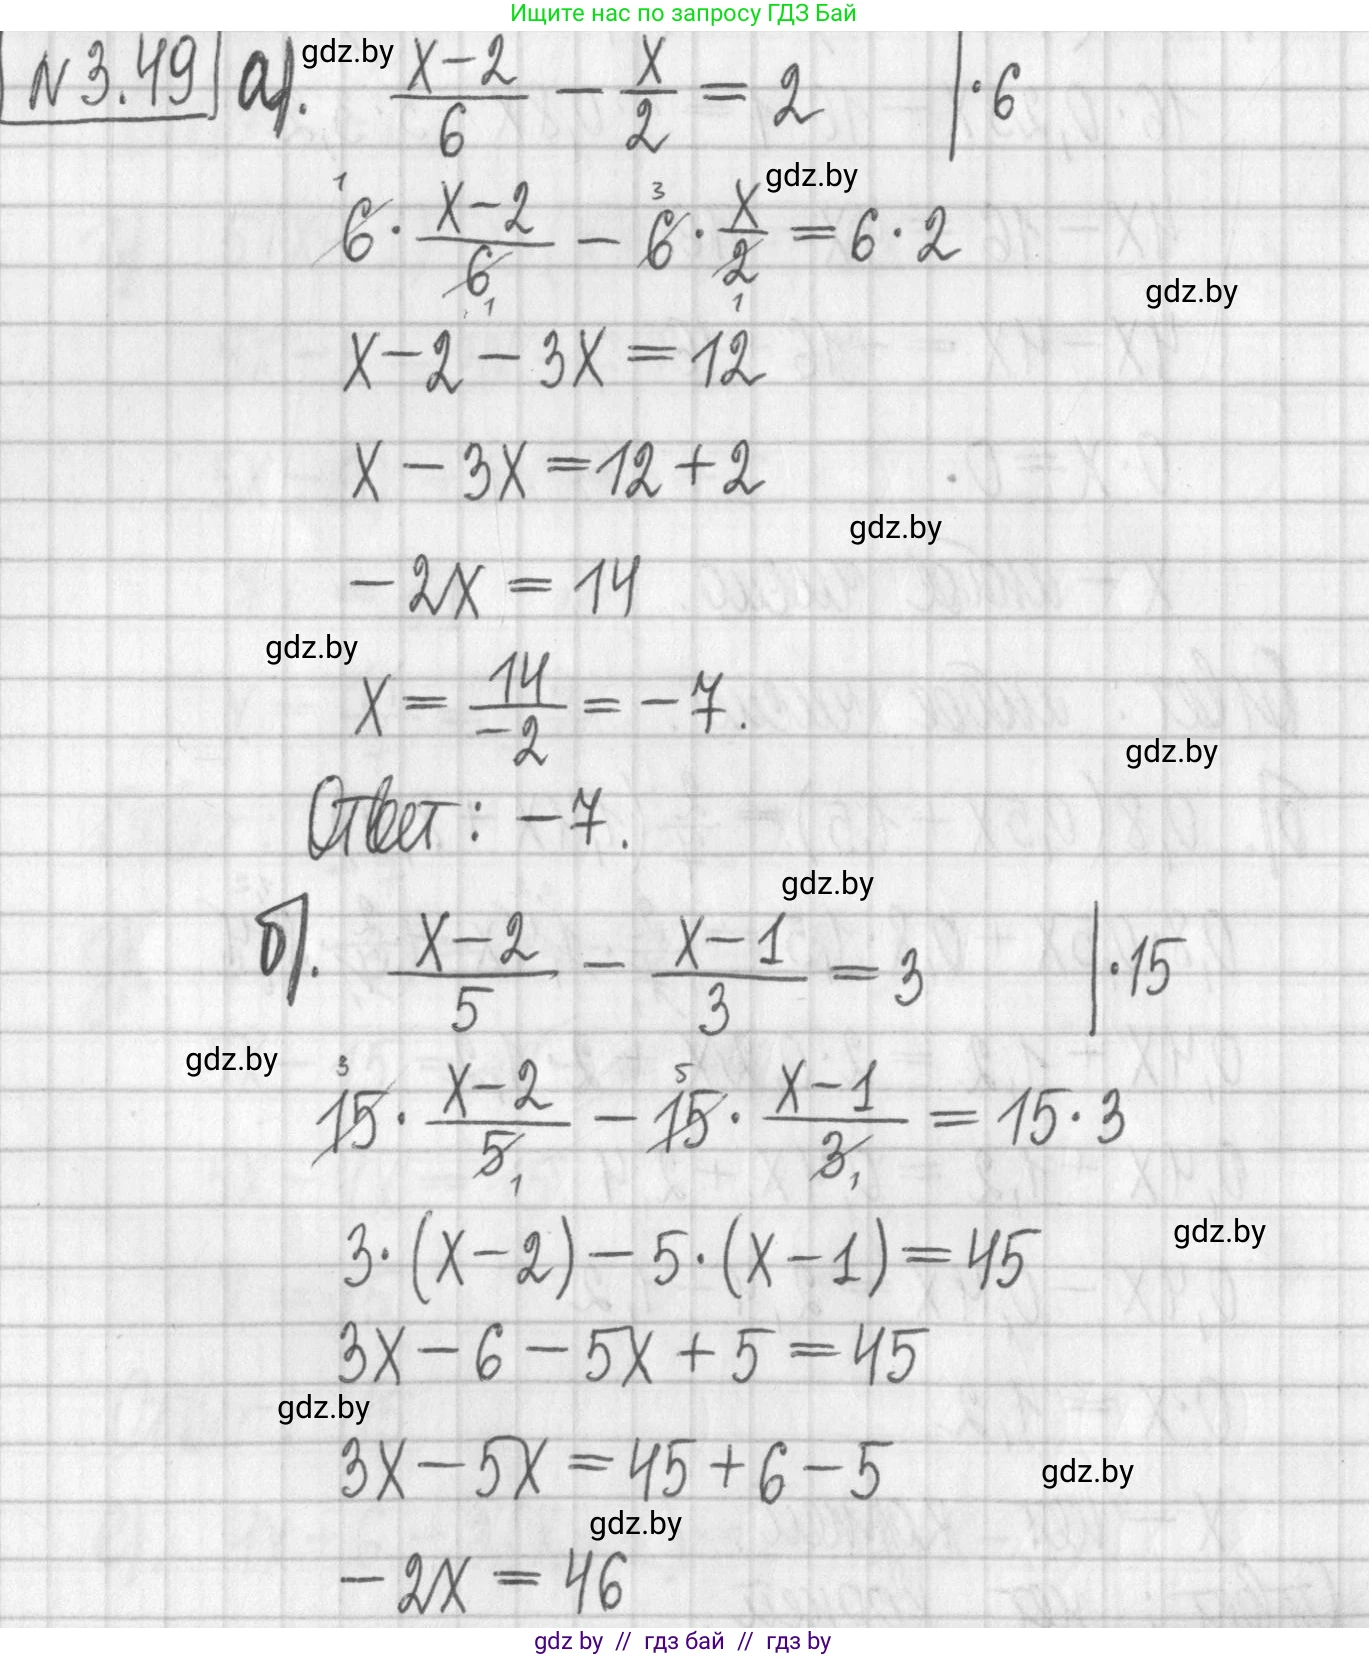 Ищите нас по запросу ГДЗ Бай
N 3.49 а). gdz.by (x-2)/6 - x/2 = 2 | ·6
gdz.by
1 6 · (x-2)/6 1 - 3 6 · x/2 1 = 6 · 2
gdz.by
x-2-3x=12
x-3x=12+2
gdz.by
-2x=14
gdz.by
x = 14/-2 = -7.
gdz.by
Ответ: -7.
gdz.by
б). (x-2)/5 - (x-1)/3 = 3 | ·15
gdz.by
3 15 · (x-2)/5 1 - 5 15 · (x-1)/3 1 = 15 · 3
gdz.by
3·(x-2)-5·(x-1)=45
3x-6-5x+5=45
gdz.by
3x-5x=45+6-5
gdz.by
gdz.by
-2x=46
gdz by // гдз бай // гдз by